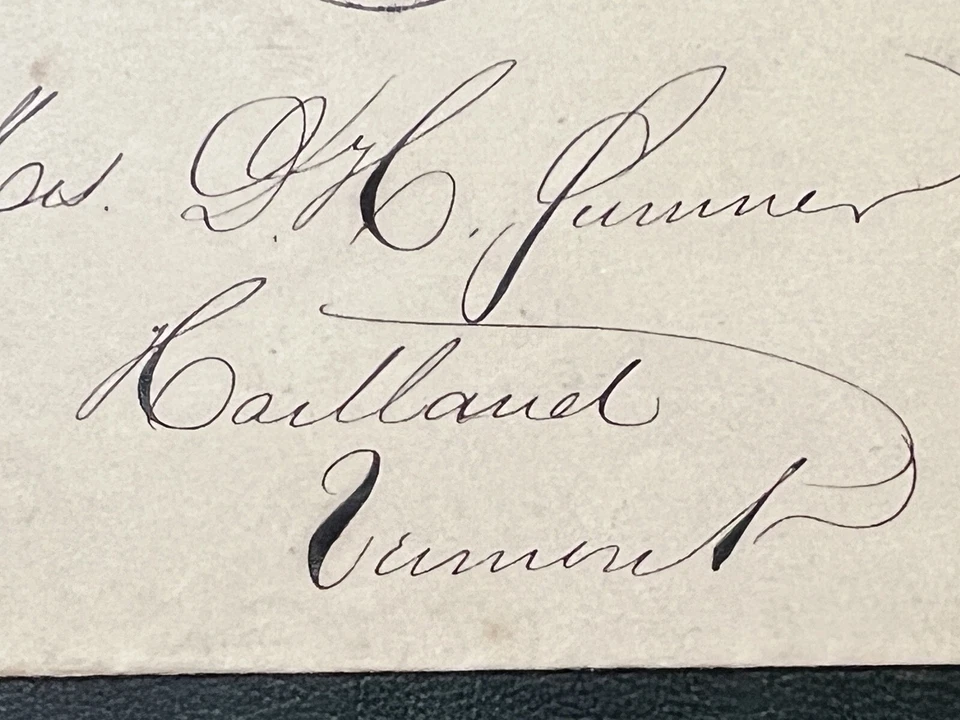 Mrs. D. H. Sumner
Hartland
Vermont